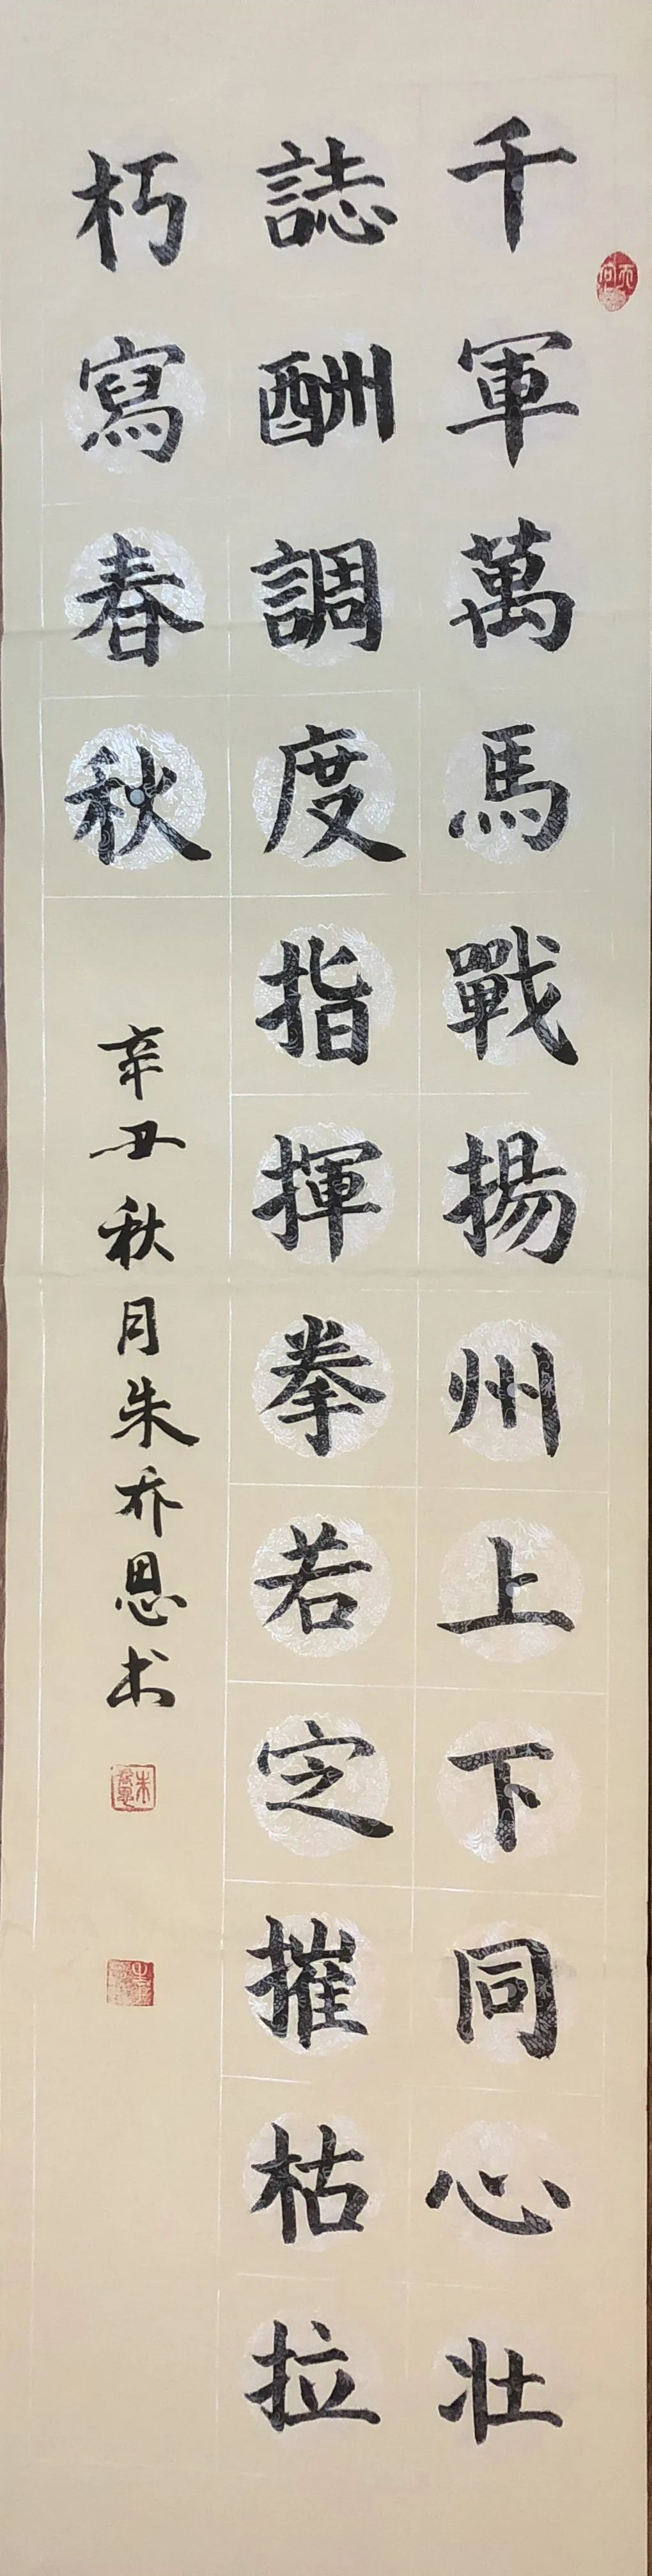 千軍萬馬戰揚州上下同心壯
誌酬調度指揮拳若定摧枯拉
朽寫春秋
辛丑秋月朱乔恩书